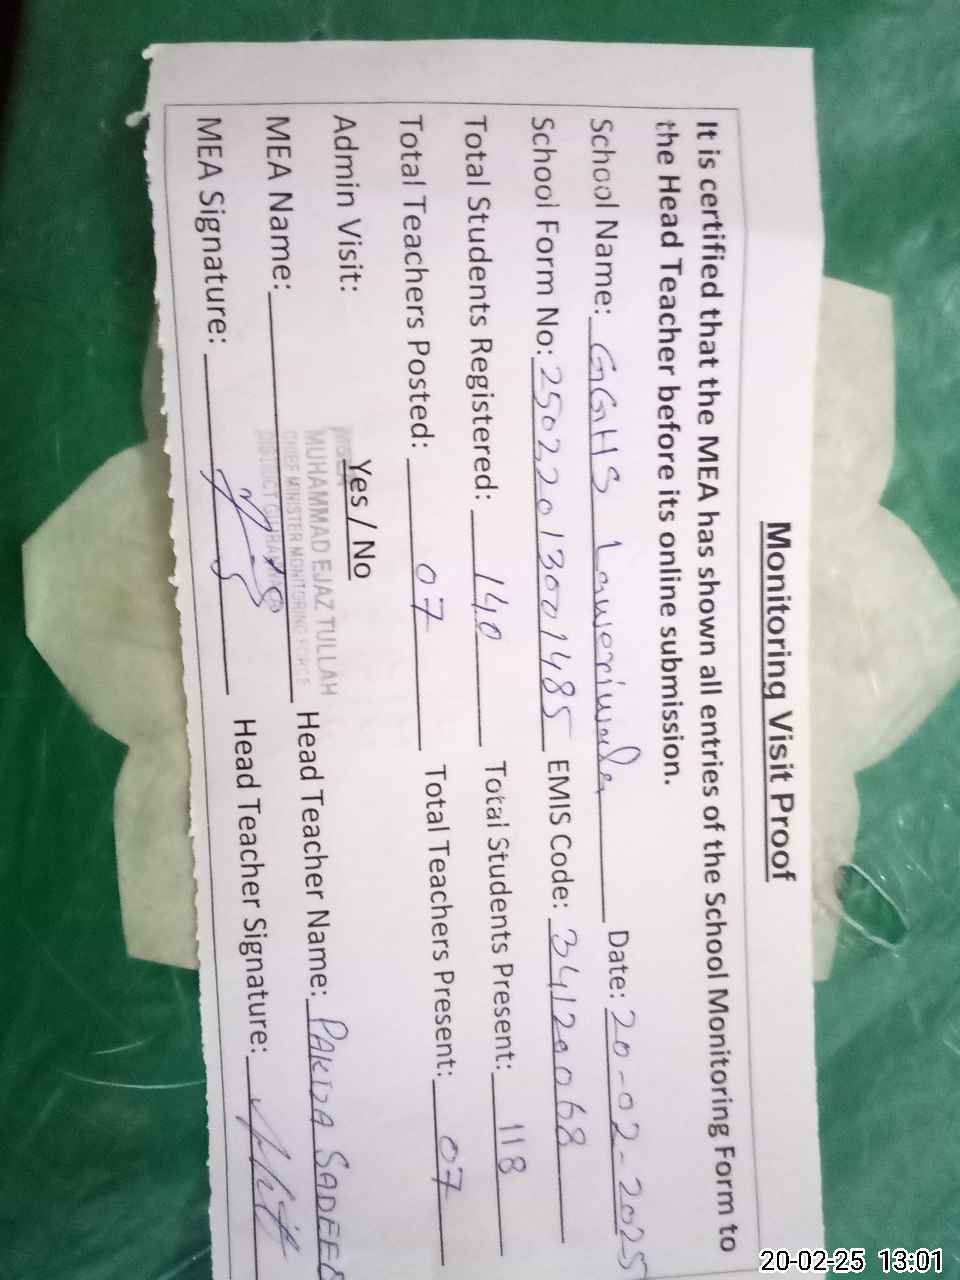 Monitoring Visit Proof
It is certified that the MEA has shown all entries of the School Monitoring Form to
the Head Teacher before its online submission.
School Name: GGHS Date: 20-02-2025
School Form No: 25022013001485 EMIS Code: 34120068
Total Students Registered: 140 Total Students Present: 118
Total Teachers Posted: 07 Total Teachers Present: 07
Admin Visit: Yes / No
MUHAMMAD EJAZ TULLAH
CHIEF MINISTER MONITORING FORCE
DISTRICT
MEA Name: Head Teacher Name:
MEA Signature: Head Teacher Signature:
20-02-25 13:01